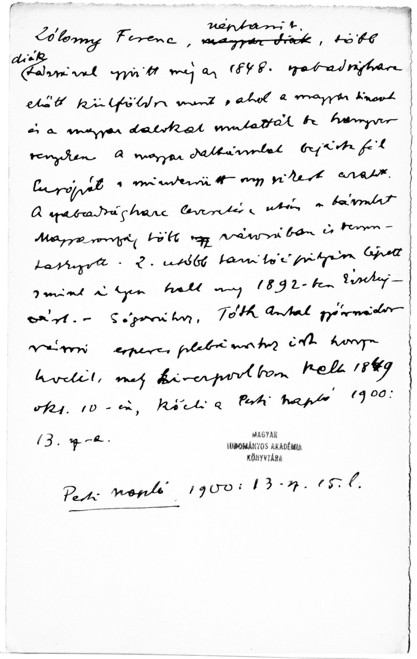 néptanít.
Zólomy Ferenc, magyar diák, több
diák
társával együtt még az 1848. szabadságharc
előtt külföldre ment, ahol a magyar táncot
és a magyar dalokat mutatták be hangver
senyeken. A magyar daltársulat bejárta fél
Európát s mindenütt nagy sikert aratott.
A szabadságharc leveretése után a társulat
Magyarország több városában is bemu-
tatkozott. Z. utóbb tanítói pályára lépett
s mint ilyen halt meg 1892-ben Érsekuj-
várt. - Sógorához, Tóth Antal
városi esperes plébánoshoz írt
levelét, mely Liverpoolban kelt 1849
okt. 10-én, közli a Pesti Napló 1900:
13. sz-a.
MAGYAR
TUDOMÁNYOS AKADÉMIA
KÖNYVTÁRA
Pesti Napló 1900: 13-sz. 15. l.